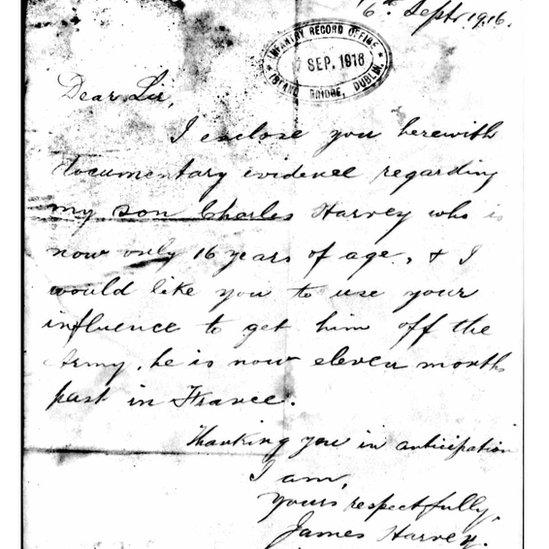 6th Septr 1916.
INFANTRY RECORD OFFICE
7 SEP. 1916
ISLAND BRIDGE, DUBLIN.
Dear Sir,
I enclose you herewith
documentary evidence regarding
my son Charles Harvey who is
now only 16 years of age, & I
would like you to use your
influence to get him off the
Army, he is now eleven months
past in France.
Thanking you in anticipation
I am,
Yours respectfully,
James Harvey.